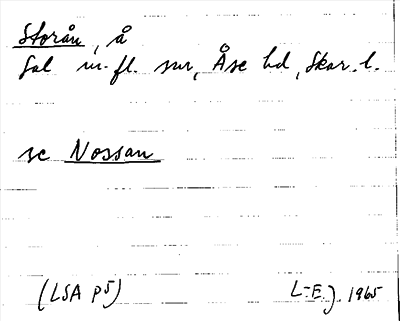 Storån, å
Sal m. fl. snr, Åse hd, Skar. l.
se Nossan
(LSA p5) L-E.J. 1965